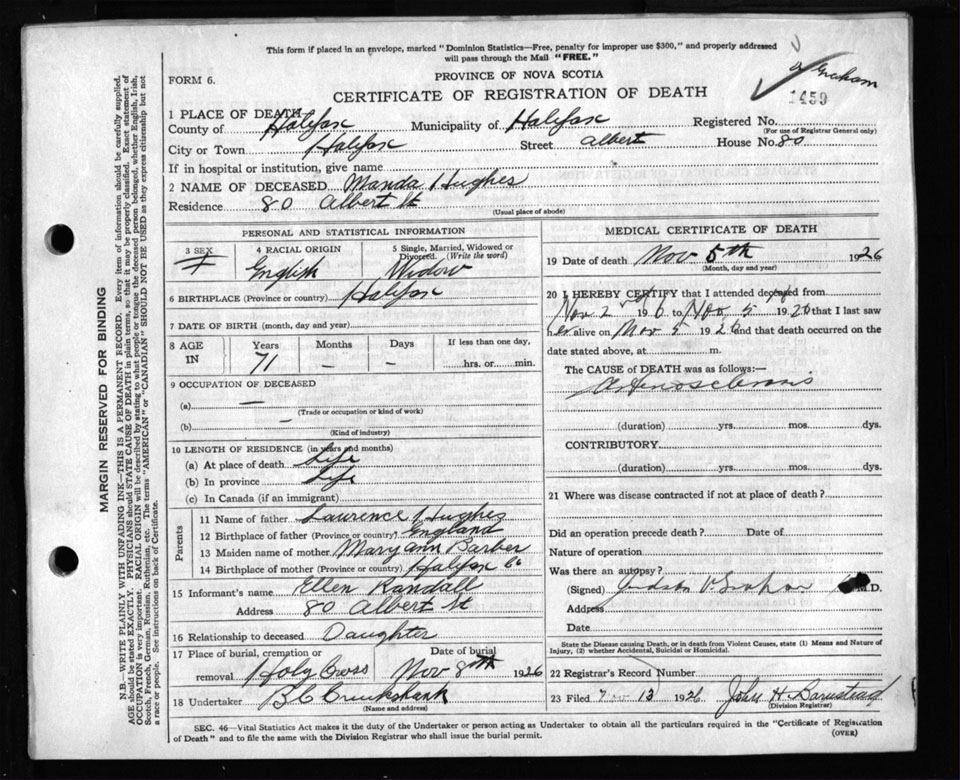 This form if placed in an envelope, marked "Dominion Statistics—Free, penalty for improper use $300," and properly addressed
will pass through the Mail "FREE."
Graham
1459
FORM 6.
PROVINCE OF NOVA SCOTIA
CERTIFICATE OF REGISTRATION OF DEATH
1 PLACE OF DEATH
County of Halifax Municipality of Halifax Registered No.
(For use of Registrar General only)
City or Town Halifax Street Albert House No. 80
If in hospital or institution, give name
2 NAME OF DECEASED Manda Hughes
Residence 80 Albert St
(Usual place of abode)
PERSONAL AND STATISTICAL INFORMATION
3 SEX F
4 RACIAL ORIGIN English
5 Single, Married, Widowed or
Divorced. (Write the word)
Widow
6 BIRTHPLACE (Province or country) Halifax
7 DATE OF BIRTH (month, day and year)
8 AGE IN
Years 71
Months –
Days –
If less than one day,
hrs. or min.
9 OCCUPATION OF DECEASED
(a) –
(Trade or occupation or kind of work)
(b) –
(Kind of industry)
10 LENGTH OF RESIDENCE (in years and months)
(a) At place of death Life
(b) In province Life
(c) In Canada (if an immigrant)
Parents
11 Name of father Laurence Hughes
12 Birthplace of father (Province or country) England
13 Maiden name of mother Mary Ann Barber
14 Birthplace of mother (Province or country) Halifax Co
15 Informant's name Ellen Randall
Address 80 Albert St
16 Relationship to deceased Daughter
17 Place of burial, cremation or
removal Holy Cross
Date of burial
Nov 8th 1926
18 Undertaker B C Cruikshank
(Name and address)
MEDICAL CERTIFICATE OF DEATH
19 Date of death Nov 5th 1926
(Month, day and year)
20 I HEREBY CERTIFY that I attended deceased from
Nov 2 192 6 to Nov 5 1926 that I last saw
her alive on Nov 5 1926 and that death occurred on the
date stated above, at m.
The CAUSE of DEATH was as follows:—
Arteriosclerosis
(duration) yrs. mos. dys.
CONTRIBUTORY
(duration) yrs. mos. dys.
21 Where was disease contracted if not at place of death?
Did an operation precede death? Date of
Nature of operation
Was there an autopsy?
(Signed) Graham M.D.
Address
Date
State the Disease causing Death, or in death from Violent Causes, state (1) Means and Nature of
Injury, (2) whether Accidental, Suicidal or Homicidal.
22 Registrar's Record Number
23 Filed Nov 13 1926 John H Barnstead
(Division Registrar)
SEC. 46—Vital Statistics Act makes it the duty of the Undertaker or person acting as Undertaker to obtain all the particulars required in the "Certificate of Registration
of Death" and to file the same with the Division Registrar who shall issue the burial permit.
(OVER)
MARGIN RESERVED FOR BINDING
N.B.—WRITE PLAINLY WITH UNFADING INK—THIS IS A PERMANENT RECORD. Every item of information should be carefully supplied.
AGE should be stated EXACTLY. PHYSICIANS should STATE CAUSE OF DEATH in plain terms, so that it may be properly classified. Exact statement of
OCCUPATION is very important. RACIAL ORIGIN will be described by stating to what people or tongue the deceased person belonged, whether English, Irish,
Scotch, French, German, Russian, Ruthenian, etc. The terms "AMERICAN" or "CANADIAN" SHOULD NOT BE USED as they express citizenship but not
a race or people. See instructions on back of Certificate.